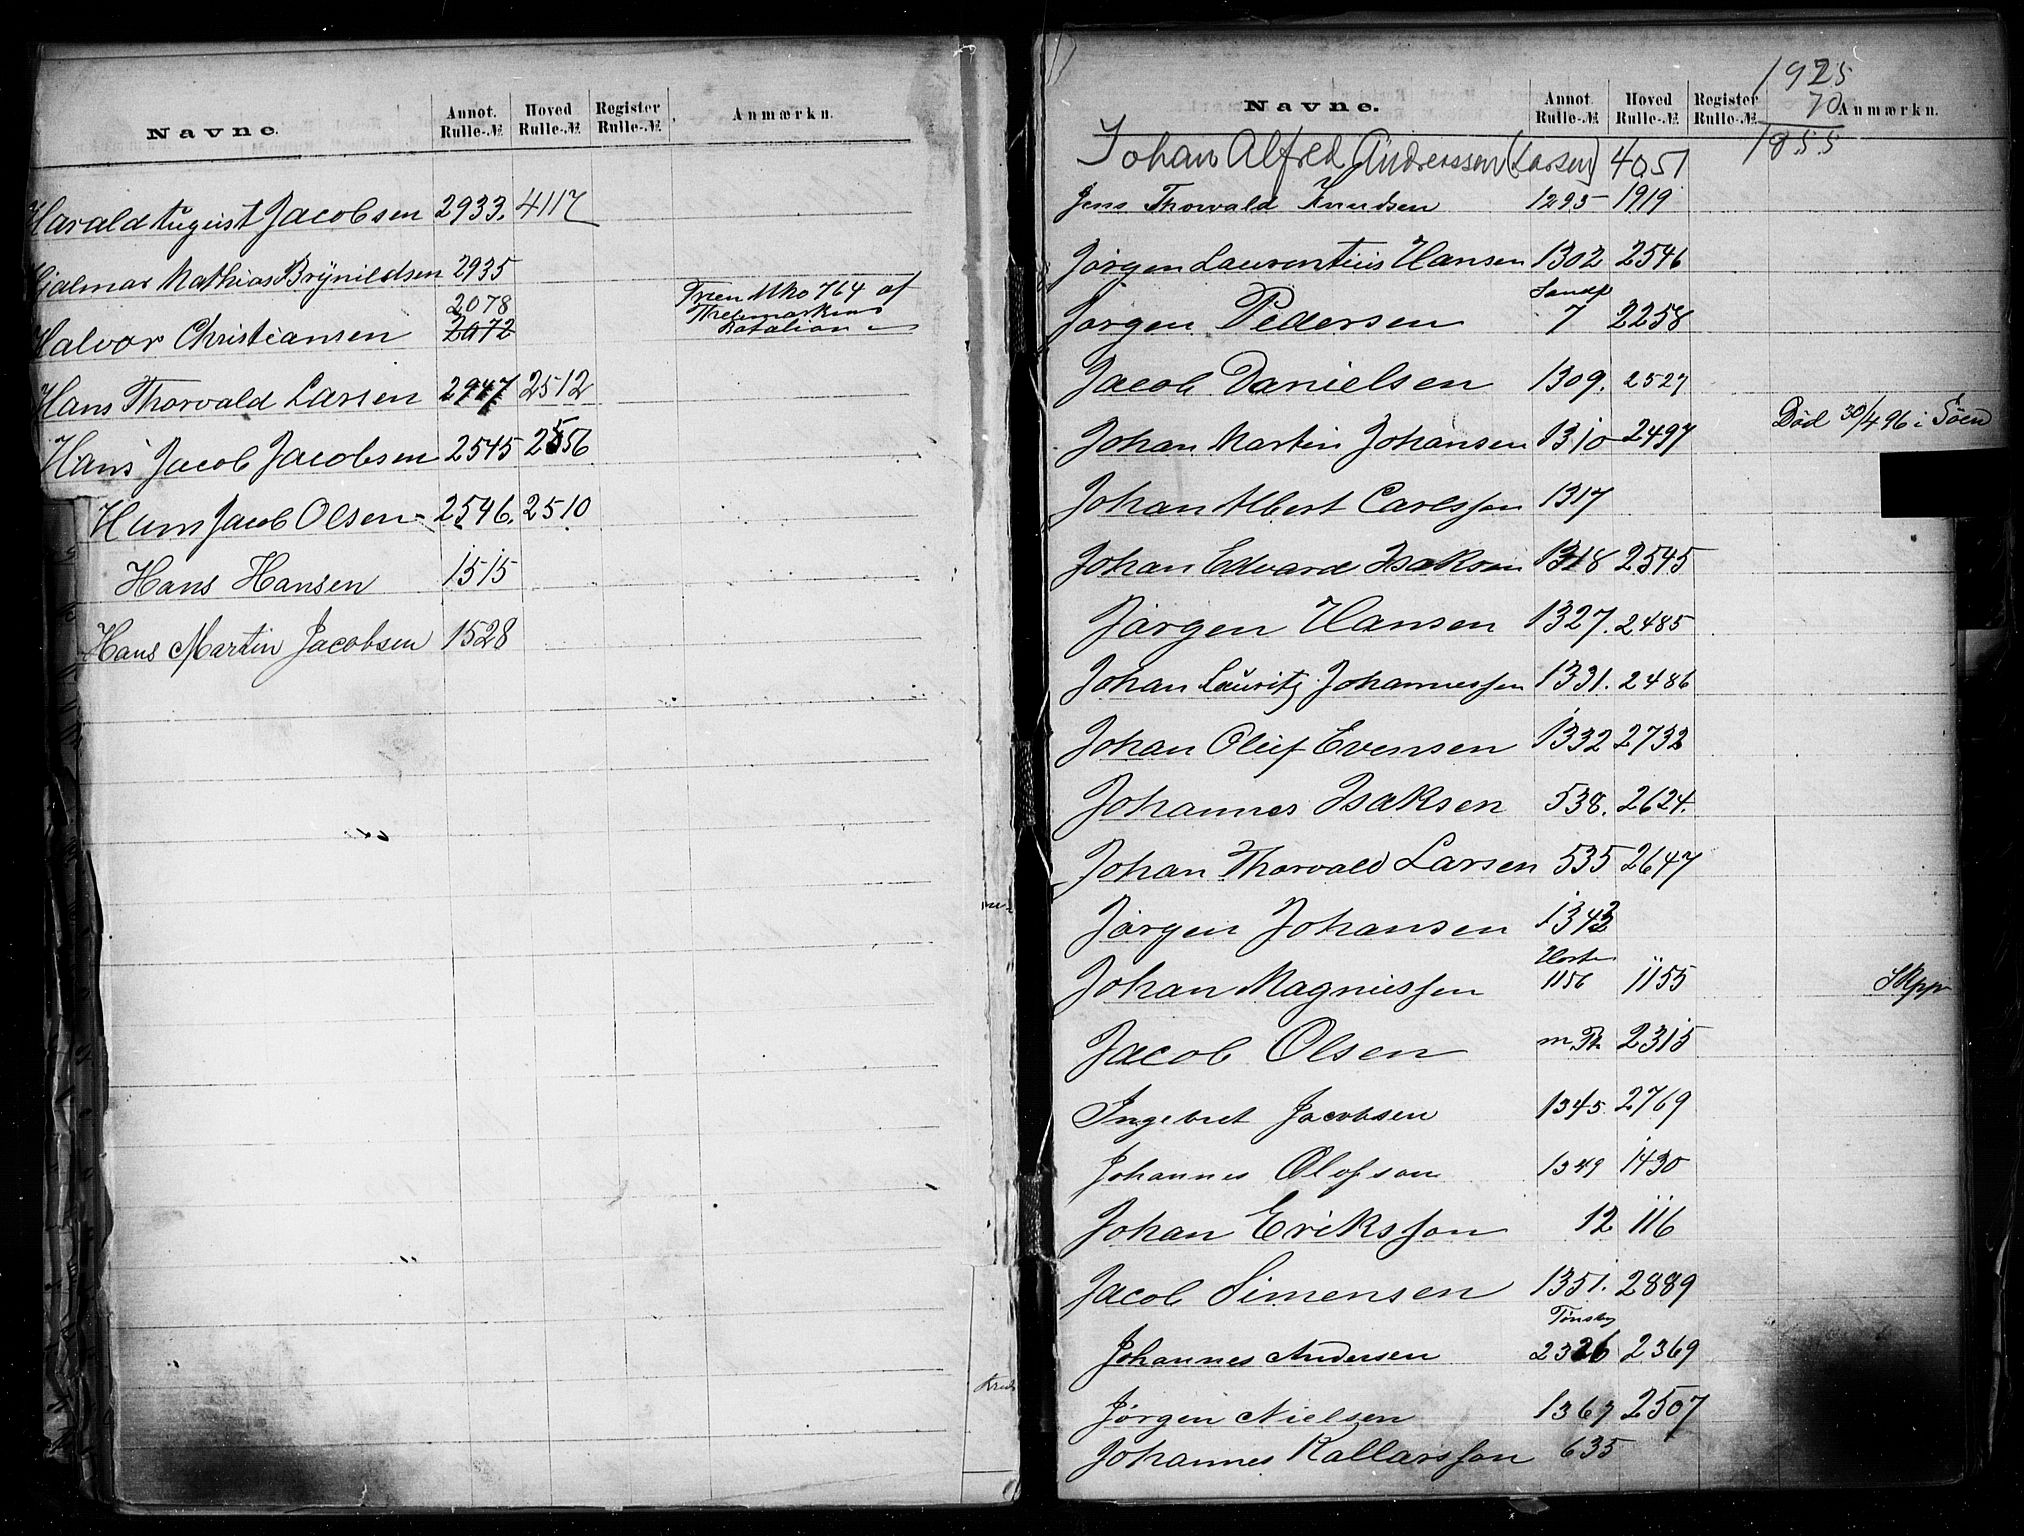 Navne. Annot. Rulle-№ Hoved Rulle-№ Register Rulle-№ Anmærkn.
Harald August Jacobsen 2933. 4117
Hjalmar Mathias Brynildsen 2935
2078
Halvor Christiansen 2072 Fraen Mko 764 af
Thelemarkens
Batalion
Hans Thorvald Larsen 2947 2512
Hans Jacob Jacobsen 2545 2556
Hans Jacob Olsen 2546. 2510
Hans Hansen 1515
Hans Martin Jacobsen 1528
1925
70
1855
Navne. Annot. Rulle-№ Hoved Rulle-№ Register Rulle-№ Anmærkn.
Johan Alfred Andreassen (Larsen) 4051
Jens Thorvald Knudsen 1295 1919
Jørgen Laurentius Hansen 1302 2546
Sandf
Jørgen Pedersen 7 2258
Jacob Danielsen 1309. 2527
Johan Martin Johansen 1310 2497 Død 30/4 96 i Søen
Johan Albert Carlsson 1317
Johan Edvard Isaksen 1318 2545
Jørgen Hansen 1327. 2485
Johan Lauritz Johannessen 1331. 2486
Johan Oluf Evensen 1332 2732
Johannes Isaksen 538. 2624.
Johan Thorvald Larsen 535 2647
Jørgen Johansen 1343
Johan Magnussen 1156 1155
Jacob Olsen 2315
Ingebret Jacobsen 1345. 2769
Johannes Olofson 1349 1430
Johan Eriksson 12 116
Jacob Simensen 1351. 2889
Tønsby
Johannes Andersen 2326 2369
Jørgen Nielsen 1367 2507
Johannes Kallarsson 635